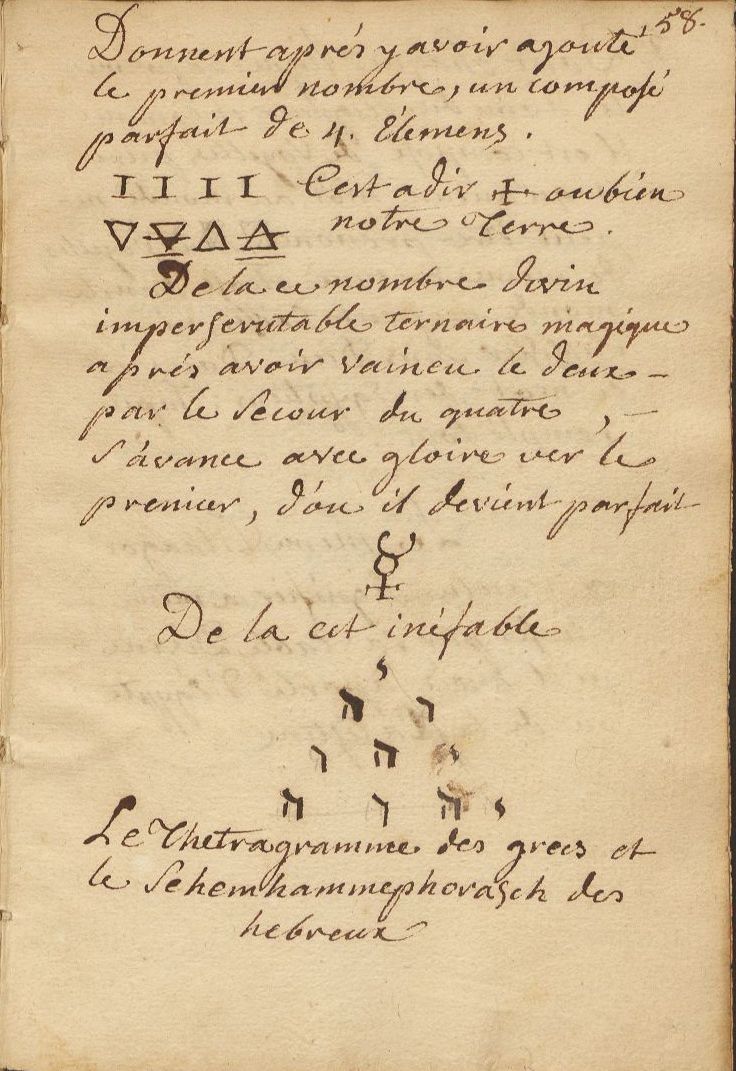 158.
Donnent aprés y avoir ajouté
le premier nombre, un composé
parfait de 4. Élemens.
I I I I C'est a dir ou bien
🜄 🜃 🜂 🜁 notre Terre.
De la ce nombre divin
imperscrutable ternaire magique
aprés avoir vaincu le deux -
par le Secour du quatre, -
s'ávance avec gloire ver le
premier, d'óu il devient parfait
☿
De la est inéfable
י
ה ו
ו ה י
ה ו ה י
Le Thetragramme des grecs et
le Schemhammephorasch des
hebreux